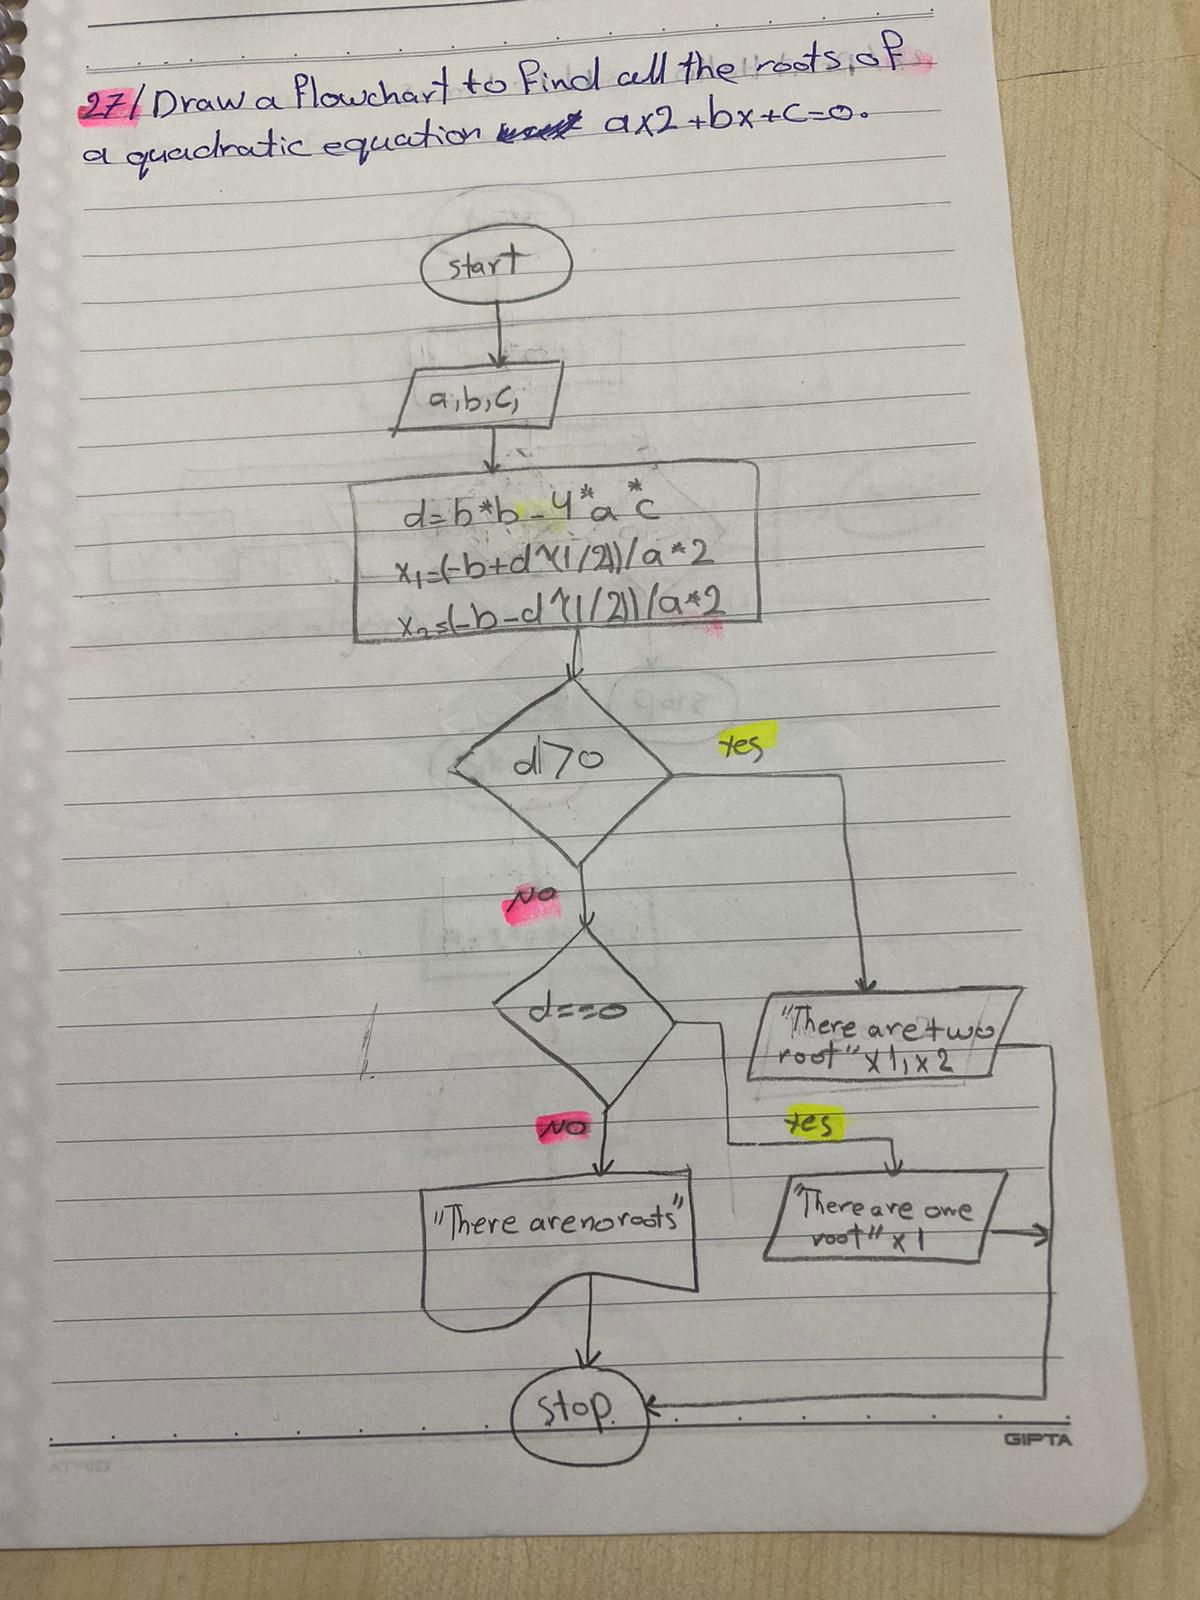 27/ Draw a flowchart to find all the roots of
a quadratic equation ax2+bx+c=0.
start
a,b,c,
d=b*b-4*a*c
x1=(-b+d^(1/2))/a*2
x2=(-b-d^(1/2))/a*2
d>0
Yes
NO
d==0
"There are two
root" x1,x2
NO
Yes
"There are no roots"
"There are one
root" x1
stop.
GIPTA